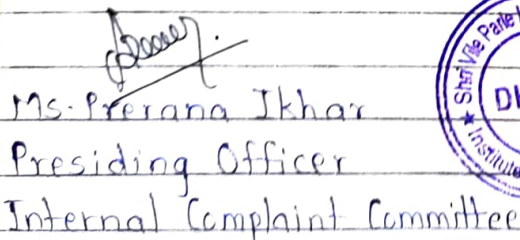 Ms. Prerana Ikhar
Presiding Officer
Internal Complaint Committee
Shri Vile Parle
Institute